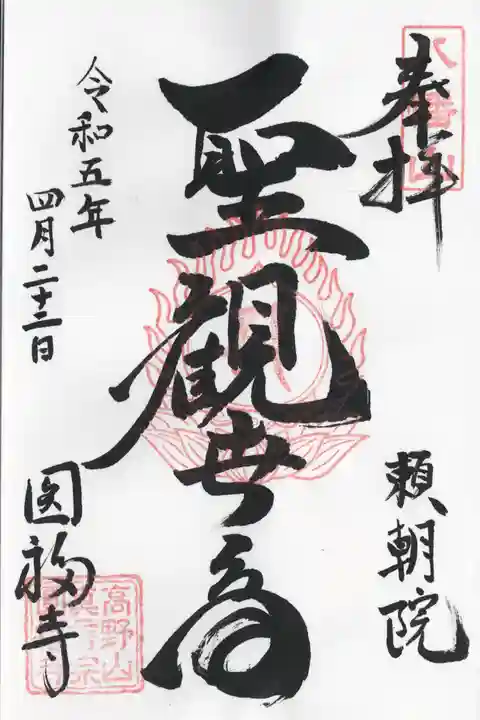 奉拝
頼朝院
聖観世音
令和五年
四月二十二日
圓福寺
高野山
真言宗